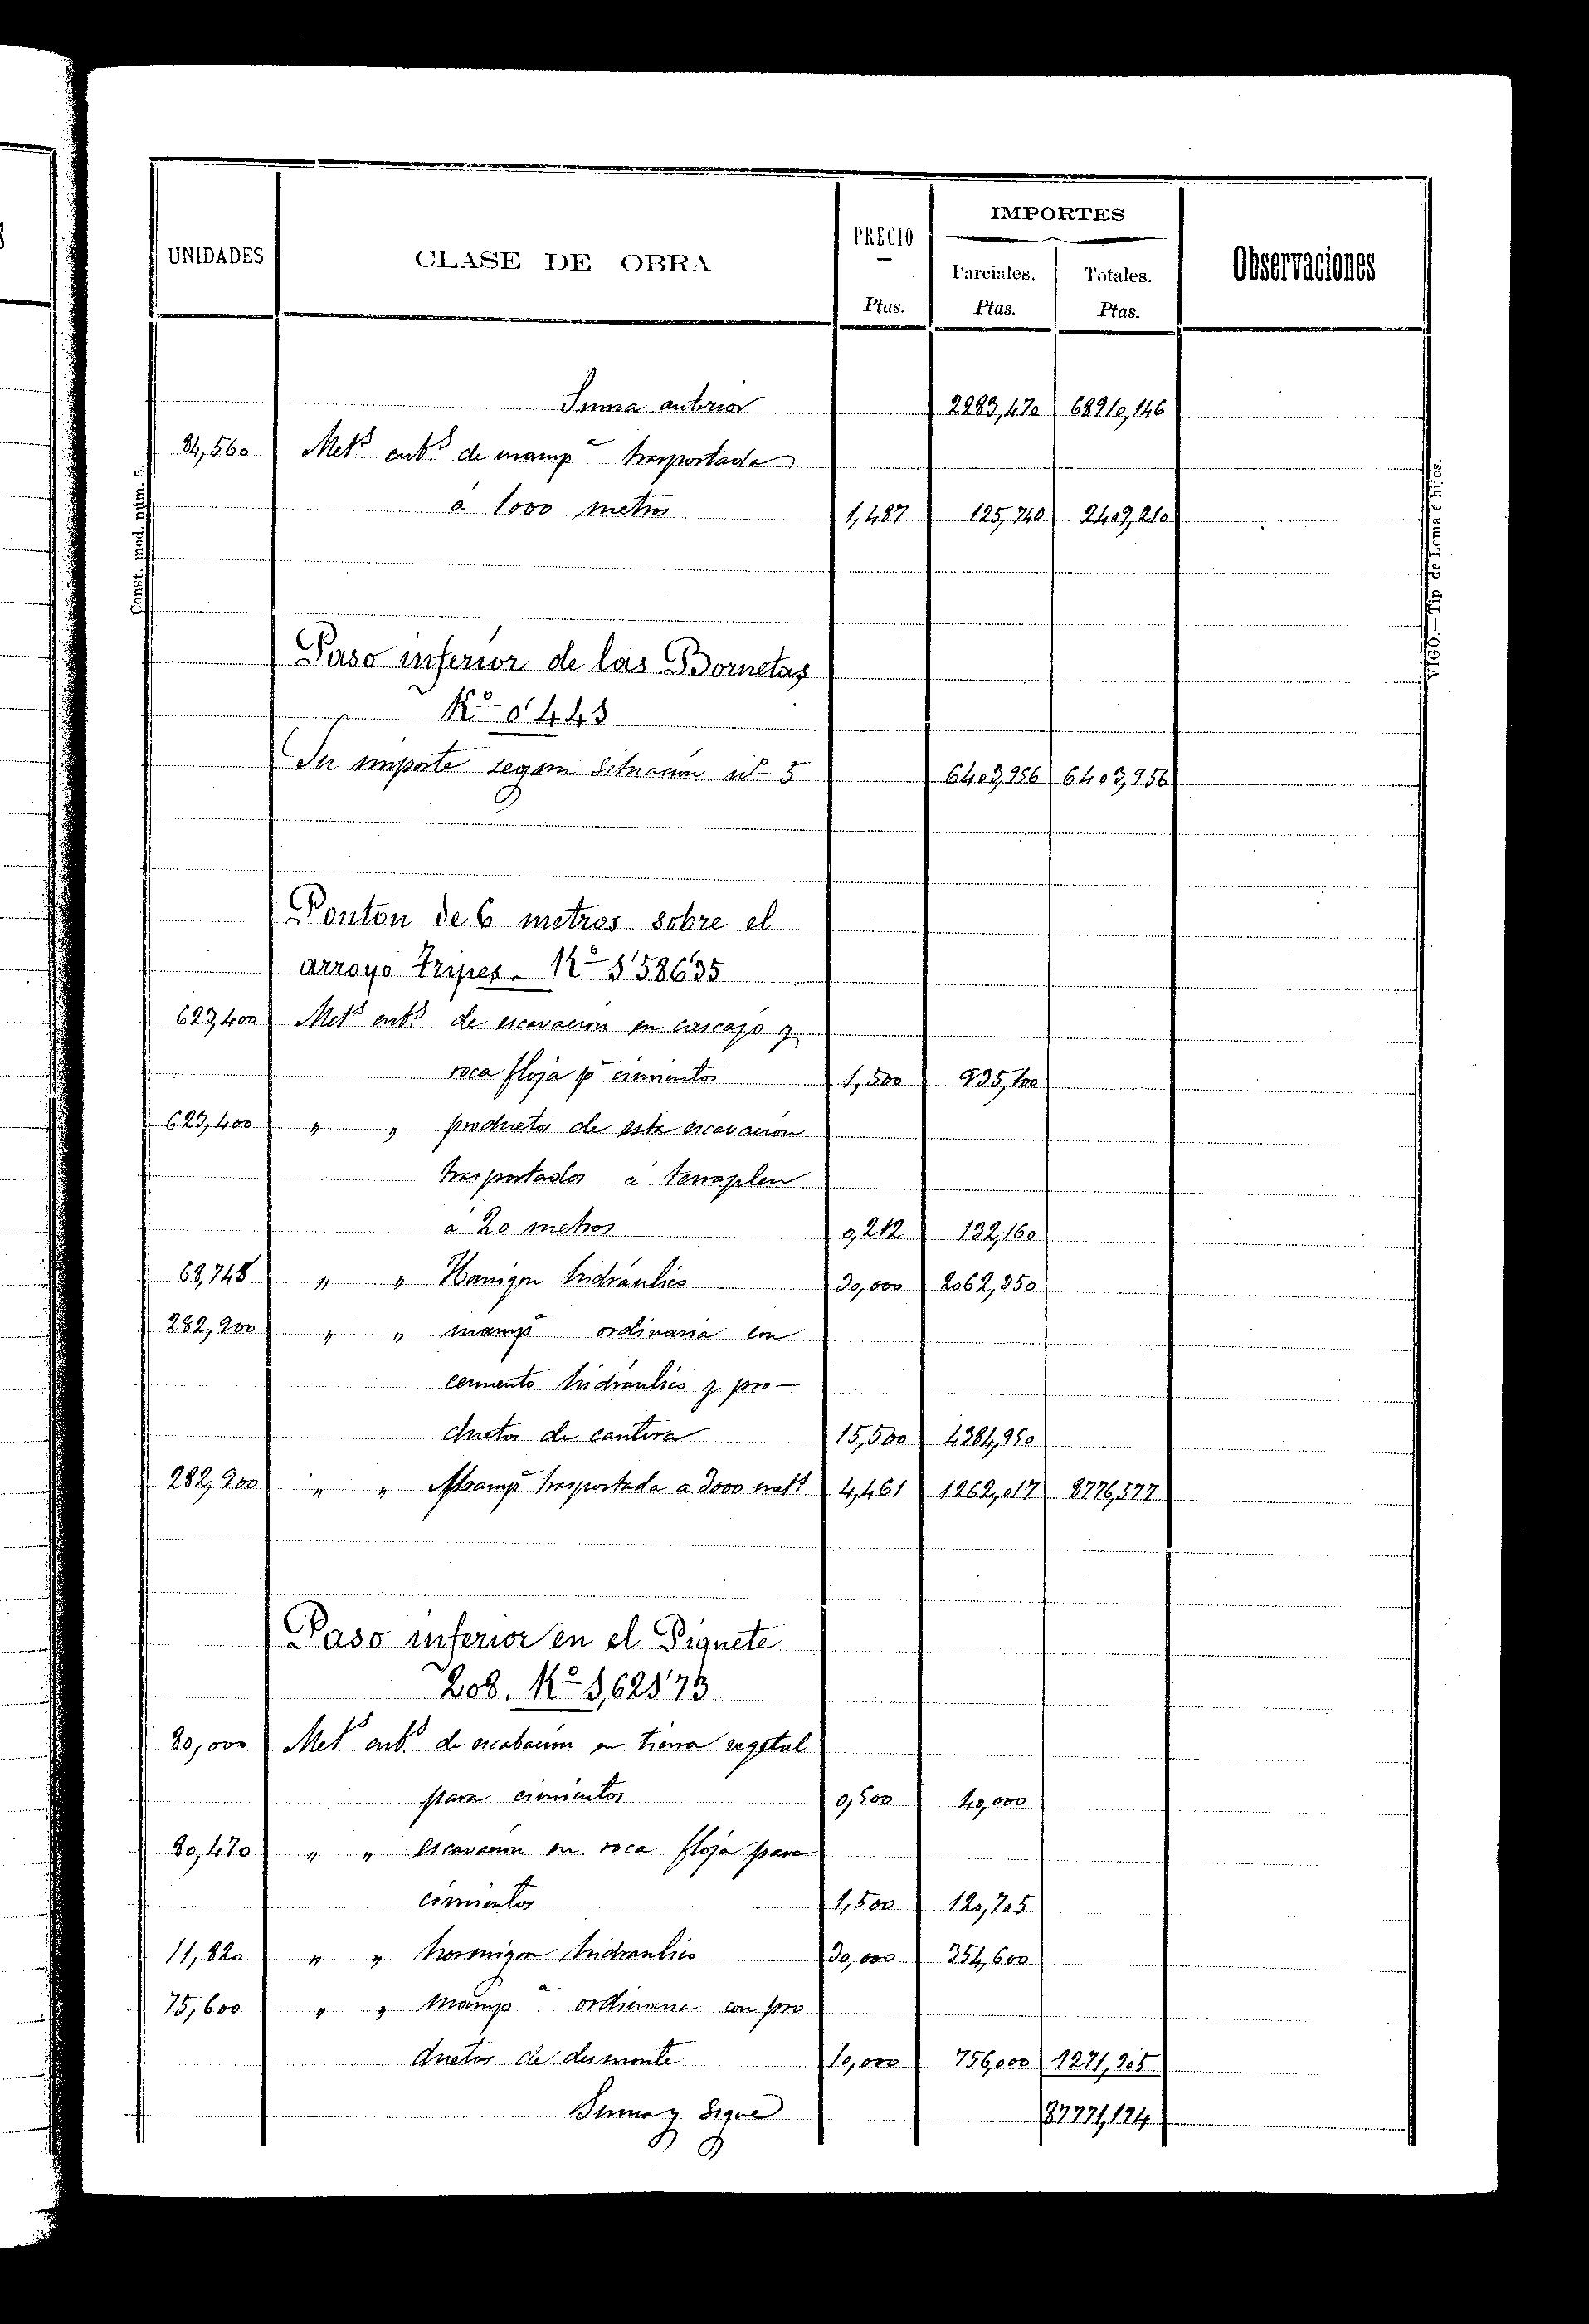 UNIDADES
CLASE DE OBRA
PRECIO
Ptas.
IMPORTES
Parciales.
Ptas.
Totales.
Ptas.
Observaciones
Const. mod. núm. 5.
VIGO.—Tip de Lema é hijos.
Suma anterior 2283,470 68910,146
84,560 Metˢ cubˢ de mampª trasportada
á 1000 metros 1,487 125,740 2409,210
Paso inferior de las Bornetas
Kº 0'448
Su importe segun situación nº 5 6403,956 6403,956
Ponton de 6 metros sobre el
arroyo Tripes - Kº 8'58635
623,400 Metˢ cubˢ de escavación en cascajo y
roca floja pª cimientos 1,500 935,100
623,400 " " productos de esta escavación
trasportados á terraplen
á 20 metros 0,212 132,160
68,745 " " Hormigon hidráulico 30,000 2062,350
282,900 " " mampª ordinaria con
cemento hidráulico y pro-
ductos de cantera 15,500 4384,950
282,900 " " Mampª trasportada a 3000 metˢ 4,461 1262,017 8776,577
Paso inferior en el Piquete
208. Kº 8,628'73
80,000 Metˢ cubˢ de escabación en tierra vegetal
para cimientos 0,500 40,000
80,470 " " escavación en roca floja para
cimientos 1,500 120,705
11,820 " " hormigon hidraulico 30,000 354,600
75,600 " " mampª ordinaria con pro
ductos de desmonte 10,000 756,000 1271,305
Suma y sigue 87771,194